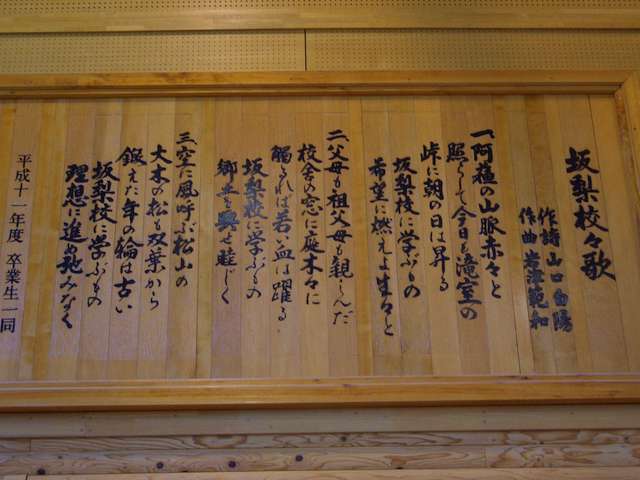 坂梨校々歌
作詩 山口白陽
作曲 岩津範和
一、阿蘓の山脈赤々と
照らして今日も滝室の
峠に朝の日は昇る
坂梨校に学ぶもの
希望に燃えよ生々と
二、父母も祖父母も親しんだ
校舎の窓に庭木々に
觸るれば若い血は躍る
坂梨校に学ぶもの
郷土を興せ睦じく
三、空に風呼ぶ松山の
大木の松も双葉から
鍛えた年の輪は古い
坂梨校に学ぶもの
理想に進め弛みなく
平成十一年度 卒業生一同